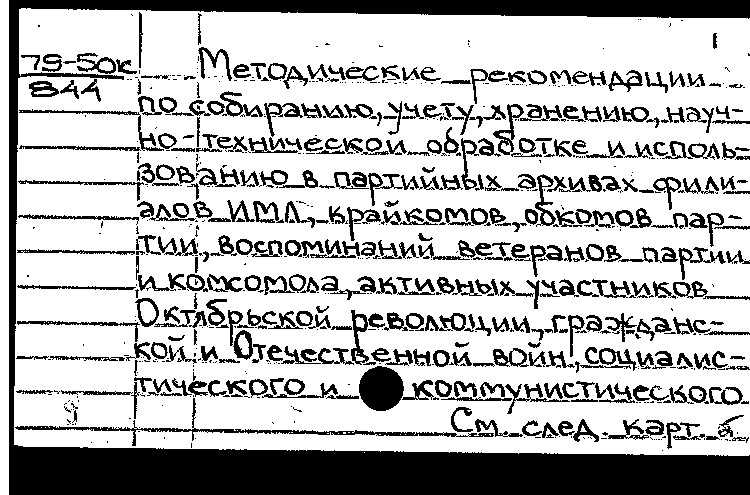 79-50к
844
Методические рекомендации
по собиранию, учету, хранению, науч-
но-технической обработке и исполь-
зованию в партийных архивах фили-
алов ИМЛ, крайкомов, обкомов пар-
тии, воспоминаний ветеранов партии
и комсомола, активных участников
Октябрьской революции, гражданс-
кой и Отечественной войн, социалис-
тического и коммунистического
См. след. карт.